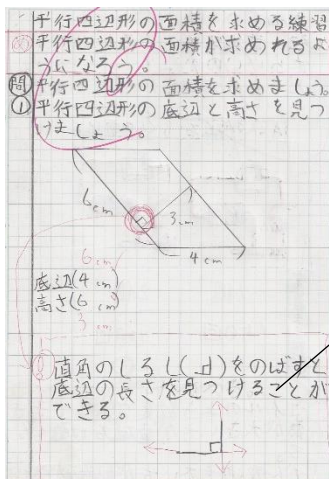 平行四辺形の面積を求める練習
平行四辺形の面積が求めれるよ
うになろう。
問 平行四辺形の面積を求めましょう。
① 平行四辺形の底辺と高さを見つ
けましょう。
6cm
3cm
4cm
6cm
底辺(4cm)
高さ(6cm)
3cm
直角のしるし(⊿)をのばすと
底辺の長さを見つけることが
できる。